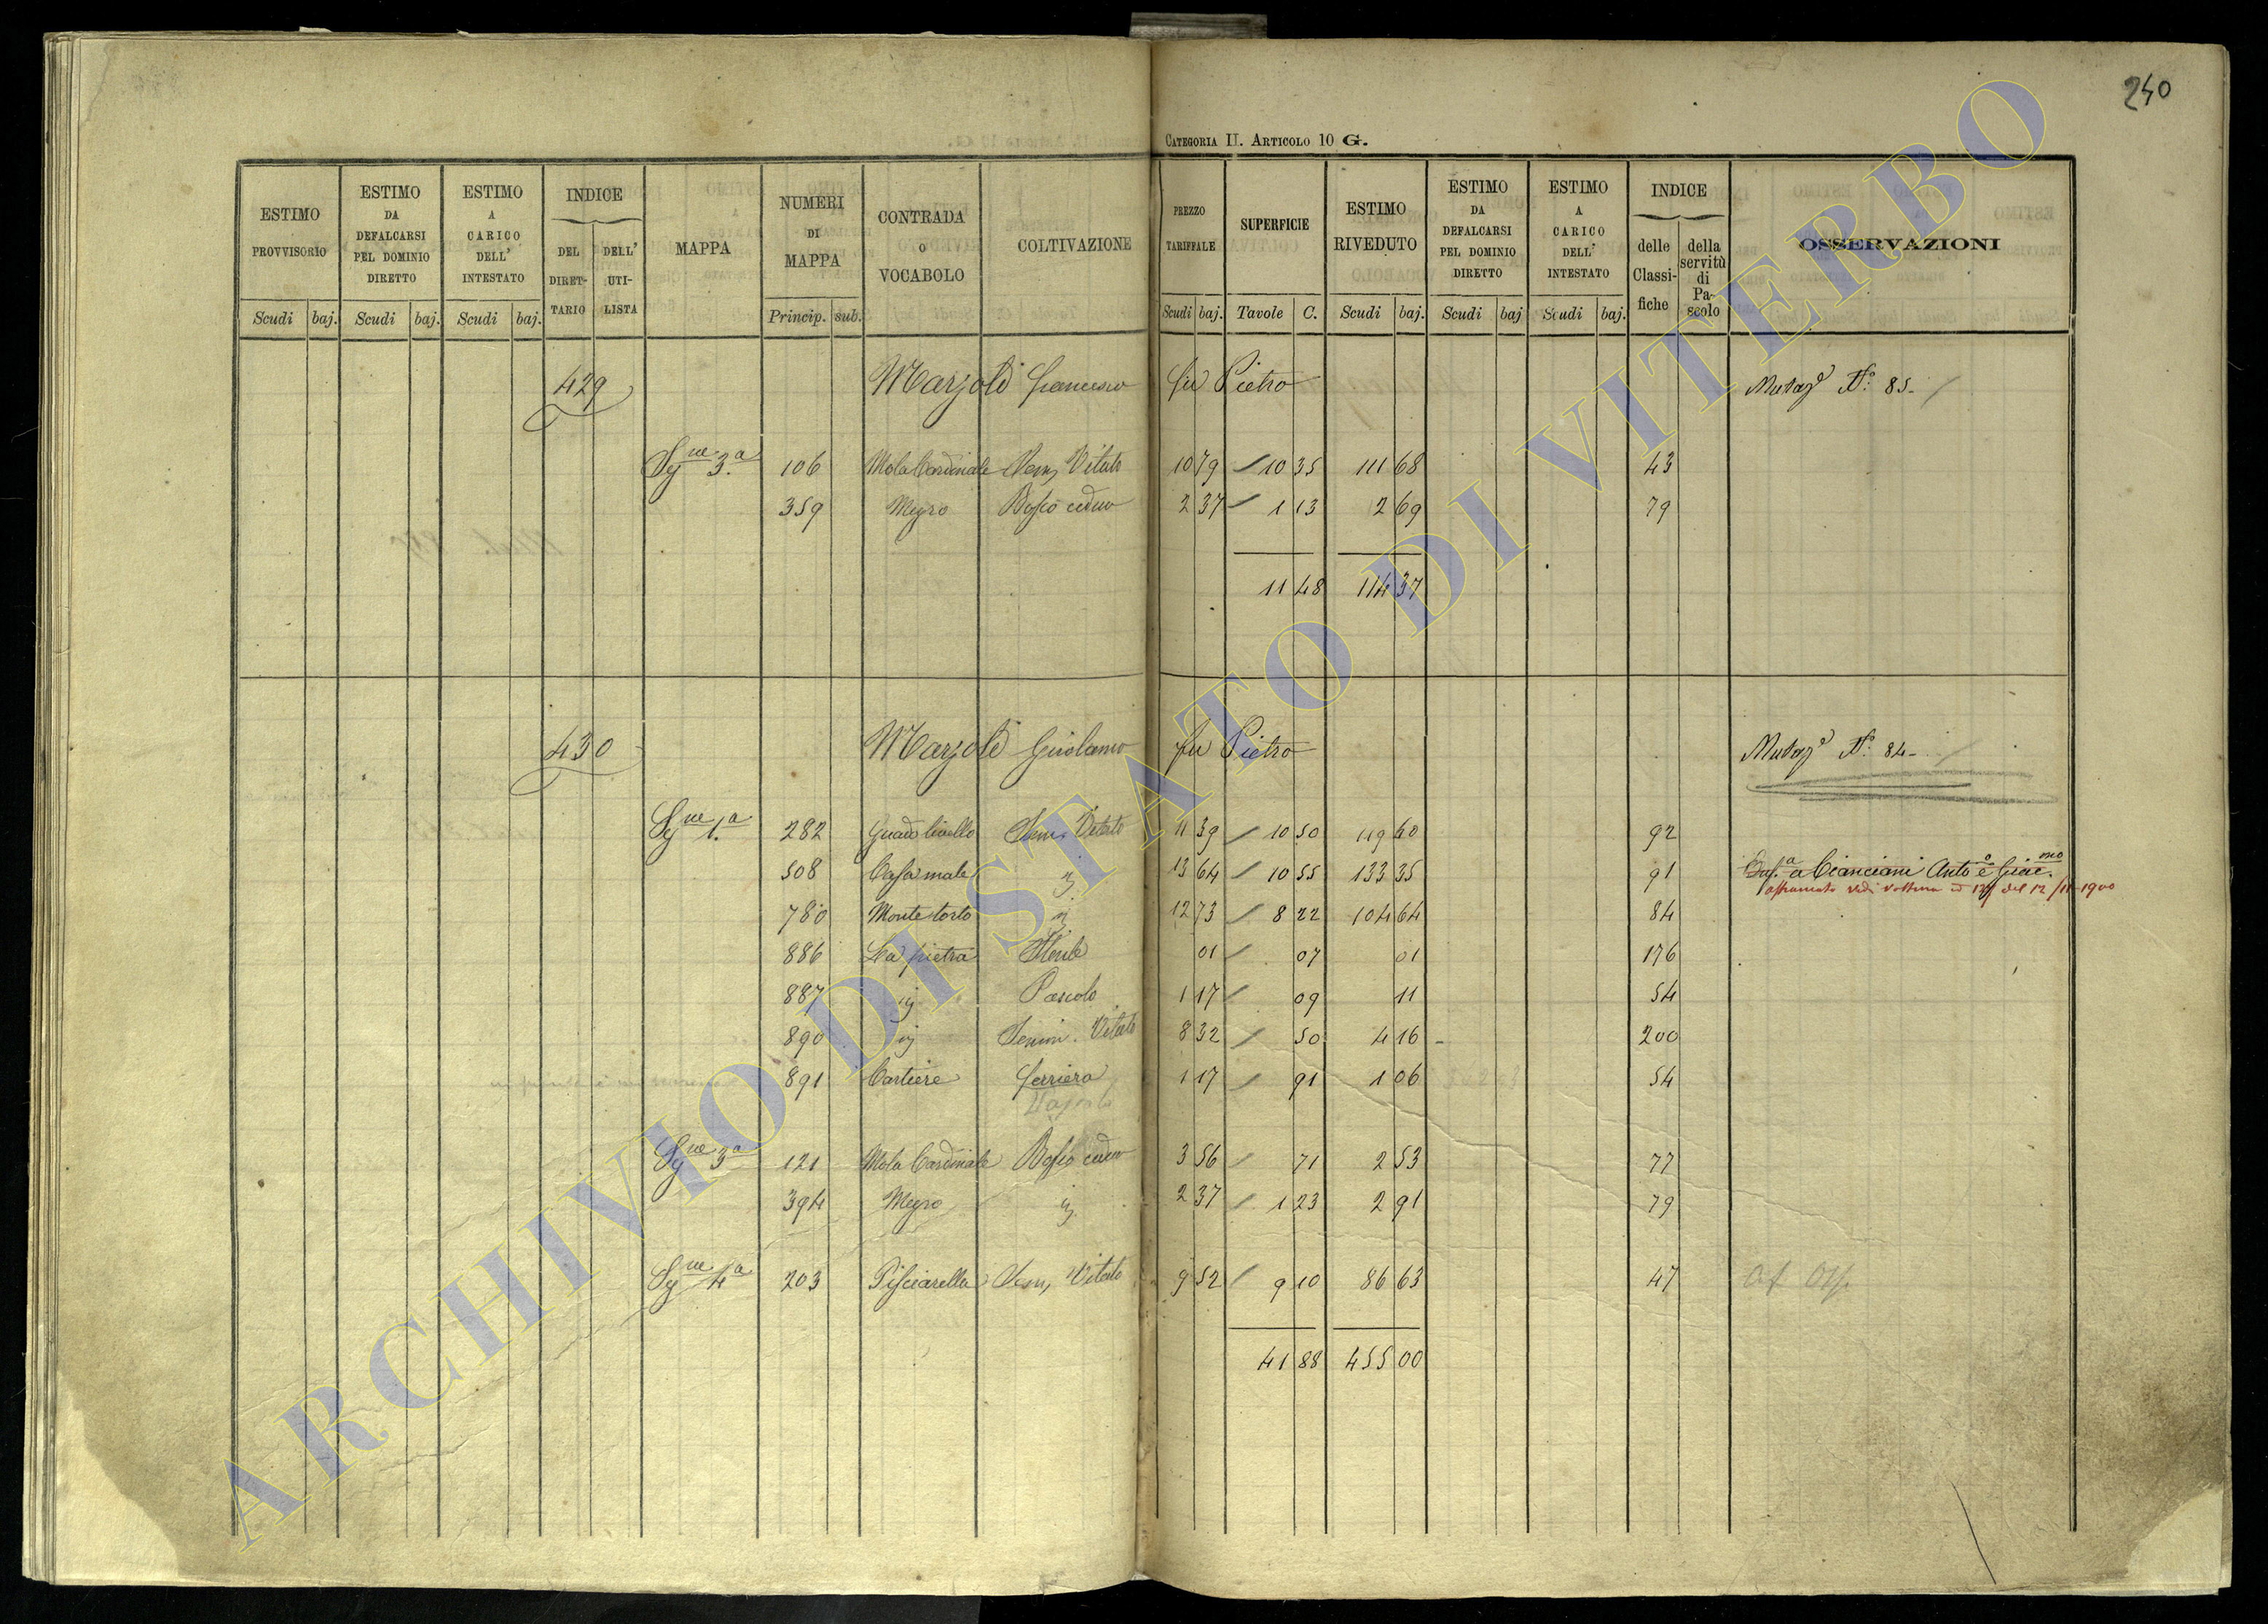 240
CATEGORIA II. ARTICOLO 10 G.
ESTIMO PROVVISORIO Scudi baj.
ESTIMO DA DEFALCARSI PEL DOMINIO DIRETTO Scudi baj.
ESTIMO A CARICO DELL' INTESTATO Scudi baj.
INDICE DEL DIRETTARIO DELL' UTILISTA
MAPPA
NUMERI DI MAPPA Princip. sub.
CONTRADA O VOCABOLO
COLTIVAZIONE
PREZZO TARIFFALE Scudi baj.
SUPERFICIE Tavole C.
ESTIMO RIVEDUTO Scudi baj.
ESTIMO DA DEFALCARSI PEL DOMINIO DIRETTO Scudi baj
ESTIMO A CARICO DELL' INTESTATO Scudi baj.
INDICE delle Classifiche della servitù di Pascolo
OSSERVAZIONI
429 Marzoli Francesco fu Pietro Mutaz.e N.° 85.
Sg.ne 3.a 106 Mola Cardinale Sem. Vitato 10 79 10 35 111 68 43
359 Megro Bosco ceduo 2 37 1 13 2 69 79
11 48 114 37
430 Marzoli Girolamo fu Pietro Mutaz.e N.° 84
Sg.ne 1.a 282 Guado Sem. Vitato 11 39 10 50 119 60 92
508 Casamale 13 64 10 55 133 35 91 a Cianciani Ant.o e Giac.mo
vedi del 12/11 1900
780 Monte torto 12 73 8 22 104 64 84
886 La pietra Sterile 01 07 01 176
887 Pascolo 1 17 09 11 54
890 Semin. Vitato 8 32 50 4 16 200
891 Cartiere Ferriera 1 17 91 1 06 54
Sg.ne 3.a 121 Mola Cardinale Bosco ceduo 3 56 71 2 53 77
394 Megro 2 37 1 23 2 91 79
Sg.ne 4.a 203 Pisciarella Sem. Vitato 9 52 9 10 86 63 47
41 88 455 00
ARCHIVIO DI STATO DI VITERBO